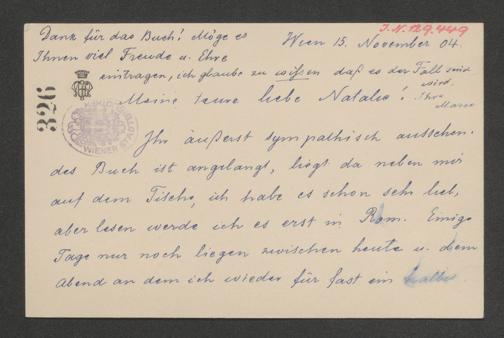 Dank für das Buch! Möge es
Ihnen viel Freude u. Ehre
eintragen, ich glaube zu wissen daß es der Fall sein
wird.
Ihre
Marie
I.N. 129.449
Wien 15. November 04.
326
WIENER STADT
Meine teure liebe Natalie!
Ihr äußerst sympathisch aussehen-
des Buch ist angelangt, liegt da neben mir
auf dem Tische, ich habe es schon sehr lieb,
aber lesen werde ich es erst in Rom. Einige
Tage nur noch liegen zwischen heute u. dem
Abend an dem ich wieder für fast ein halbes